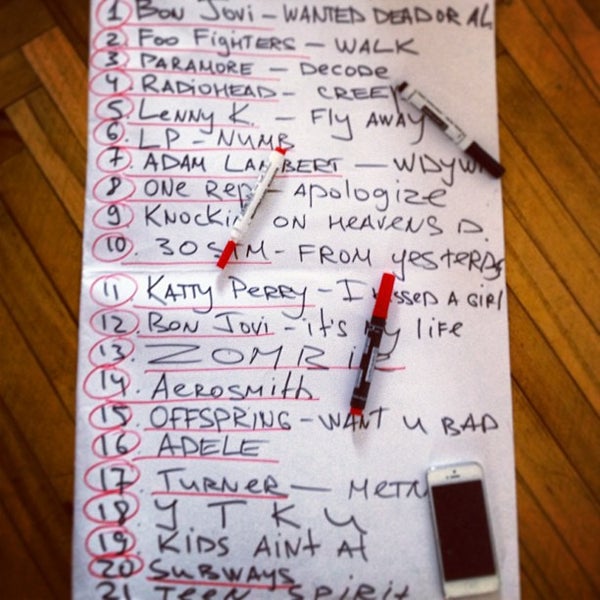 1 BON JOVI - WANTED DEAD OR AL
2 FOO FIGHTERS - WALK
3 PARAMORE - DECODE
4. RADIOHEAD - CREEP
5. LENNY K. - Fly AWAY
6. LP - NUMB
7. ADAM LAMBERT - WDYW
8 ONE Rep - Apologize
9 KNOCKIN ON HEAVENS D.
10. 30 STM - FROM yesterday
11. KATTY PERRY - I KISSED A GIRl
12. BON JOVI - it's my life
13. ZOMBIE
14. AEROSMITH
15. OFFSPRING - WANT U BAD
16 ADELE
17. TURNER - METR
18 Y T K U
19. KIDS AINt At
20 SUBWAYS
21 TEEN SPIRIT